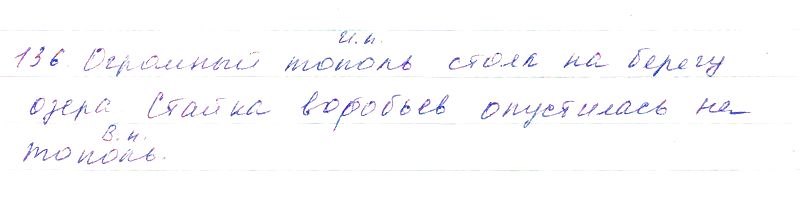 И.п.
136 Огромный тополь стоял на берегу
озера. Стайка воробьев опустилась на
В.п.
тополь.